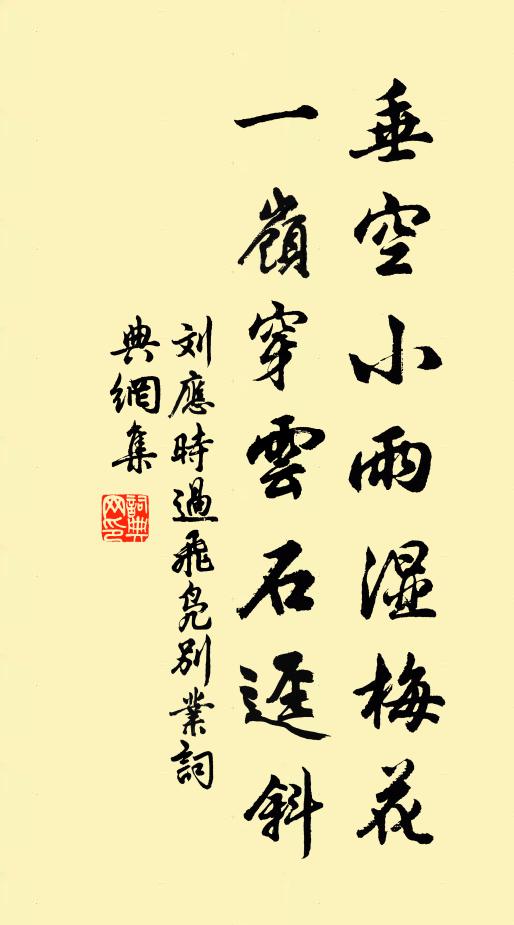 垂空小雨湿梅花
一嶺穿雲石迳斜
刘應時過飛凫别業詞
典網集
詞典
网印